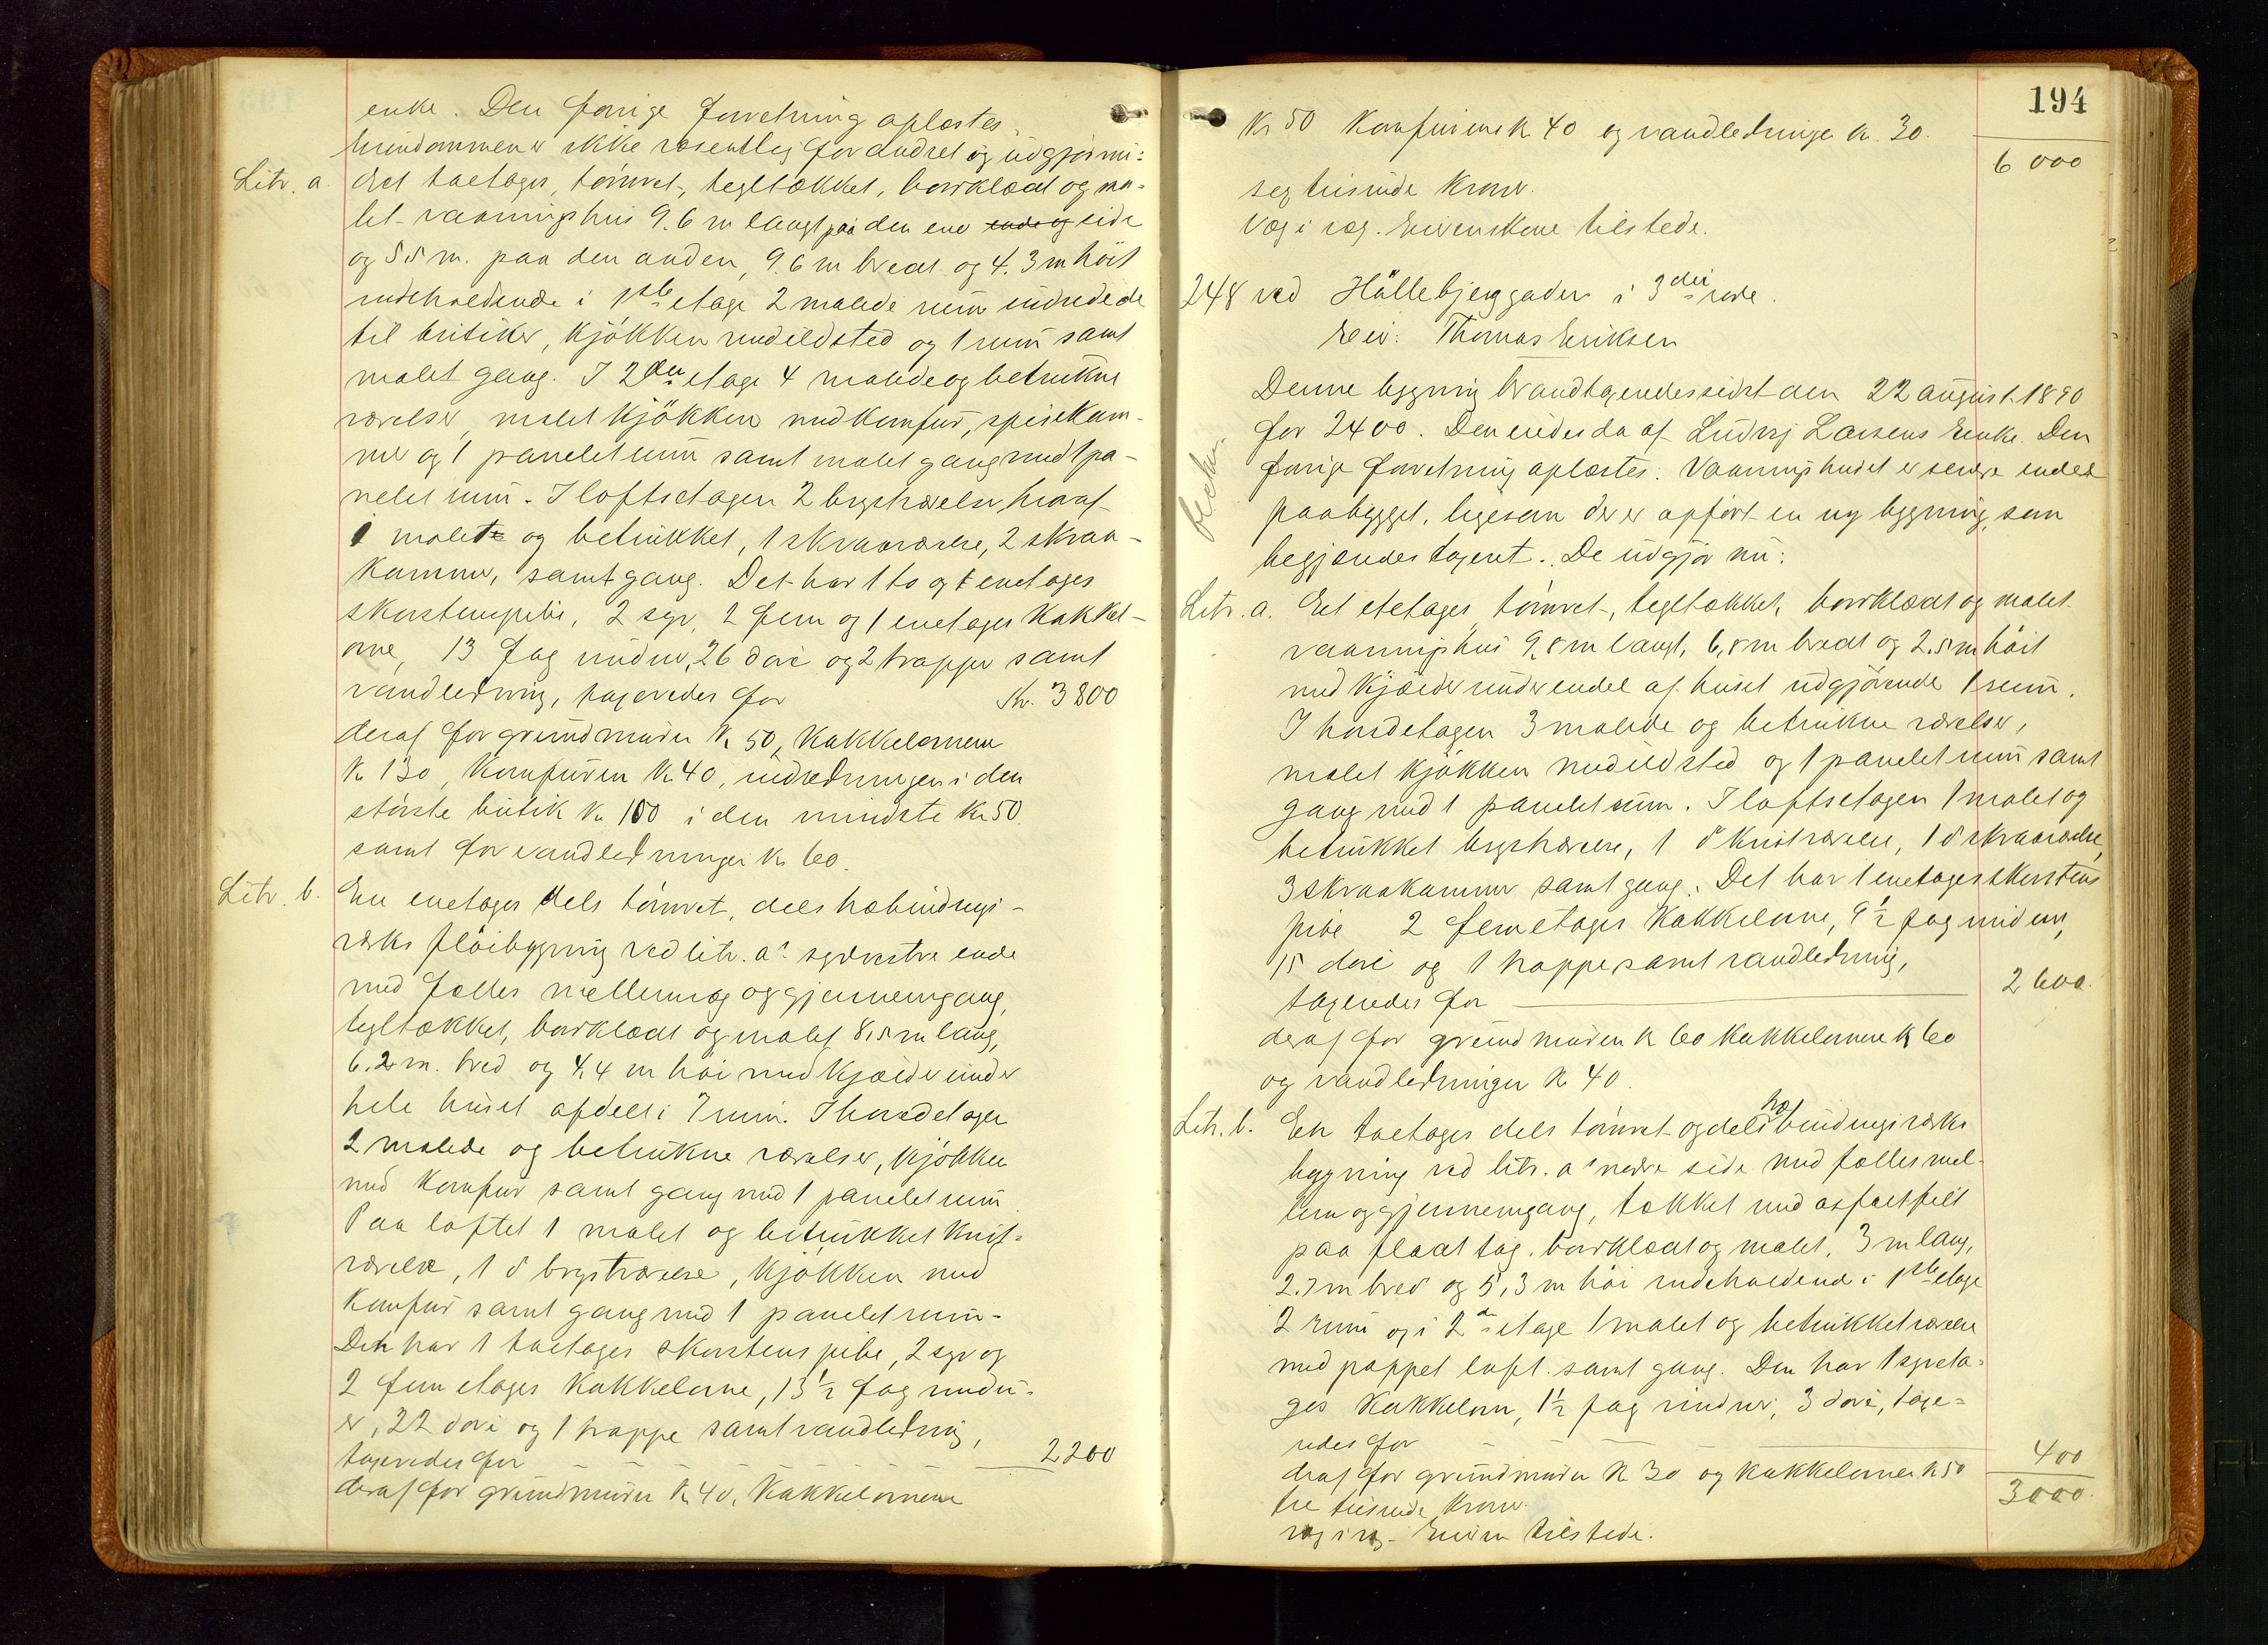 enke. Den forrige forretning oplæstes.
Eiendommen er ikke væsentlig forandret og udgjør nu:
Litr. a. det toetages, tømret-, tegltækket, bordklædt og ma-
let vaaningshus 9.6 m langt paa den ene ende og side
og 5.5 m. paa den anden, 9.6 m bredt og 4.3 m høit
indeholdende i 1ste etage 2 malede rum indredede
til butiker, kjøkken med ildsted og 1 rum samt
malet gang. I 2den etage 4 malede og betrukne
værelser, malet kjøkken med komfur, spisekam-
mer og 1 panelet rum samt malet gang med 1 pa-
nelet rum. I loftsetagen 2 brystværelser, hvoraf
1 malet og betrukket, 1 skraaværelse, 2 skraa-
kammer, samt gang. Det har 1 to og 1 enetages
skorstenspibe, 2 syv, 2 fem og 1 enetages kakkel-
ovne, 13 fag vinduer, 26 døre og 2 trapper samt
vandledning, taxeredes for Kr. 3800
deraf for grundmuren Kr 50, kakkelovnene
Kr 130, komfuren Kr 40, indredningen i den
største butik Kr 100 i den mindste Kr 50
samt for vandledningen Kr 60.
Litr. b. En enetages dels tømret, dels træbindings-
værks fløibygning ved litr. a's sydvestre ende
med fælles mellemvæg og gjennemgang,
tegltækket, bordklædt og malet 8,5 m lang,
6.2 m. bred og 4,4 m høi med kjælder under
hele huset afdelt i 7 rum. I hovedetagen
2 malede og betrukne værelser, kjøkken
med komfur samt gang med 1 panelet rum
Paa loftet 1 malet og betrukket kvist-
værelse, 1 d brystværelse, kjøkken med
komfur samt gang med 1 panelet rum-
Den har 1 toetages skorstenspibe, 2 syv og
2 fem etages kakkelovne, 13½ fag vindu-
er, 22 døre og 1 trappe samt vandledning,
taxeredes for 2200
deraf for grundmuren Kr 40, kakkelovnene
194
Kr 50 komfurene Kr 40 og vandledningen Kr. 30.
6000
sex tusinde kroner.
Væg i væg. Eierinderne tilstede.
248 ved Hållebjerggaden i 3die rode.
Eier: Thomas Eriksen
Denne bygning brandtaxeredes sidst den 22 august 1890
for 2400. Den eiedes da af Ludvig Larsens Enke. Den
forrige forretning oplæstes. Vaaningshuset er senere endel
paabygget, ligesom der er opført en ny bygning, som
begjæredes taxeret. De udgjør nu:
Litr. a. Et etetages, tømret-, tegltækket, bordklædt og malet
vaaningshus 9,8 m langt, 6,8 m bredt og 2.5 m høit
med kjælder under endel af huset udgjørende 1 rum.
I hovedetagen 3 malede og betrukne værelser,
malet kjøkken med ildsted og 1 panelet rum samt
gang med 1 panelet rum. I loftsetagen 1 malet og
betrukket brystværelse, 1 d kvistværelse, 1 d skraaværelse,
3 skraakammer samt gang. Det har 1 enetages skorstens
pibe 2 femetages kakkelovne, 9½ fag vinduer,
15 døre og 1 trappe samt vandledning,
taxeredes for 2600.
deraf for grundmuren Kr 60 kakkelovnene Kr 60
og vandledningen Kr 40.
Litr. b. En toetages dels tømret og dels træbindingsværks
bygning ved litr. a's nedre side med fælles mel-
lem og gjennemgang, tækket med asfaltfilt
paa fladt tag, bordklædt og malet, 3 m lang,
2.7 m bred og 5,3 m høi indeholdende i 1ste etage
2 rum og i 2den etage 1 malet og betrukket værelse
med pappet loft samt gang. Den har 1 syveta-
ges kakkelovn, 1½ fag vinduer, 3 døre, taxe-
redes for 400
deraf for grundmuren Kr 30 og kakkelovnen Kr 50
3000.
tre tusinde kroner.
væg i væg. Eieren tilstede.